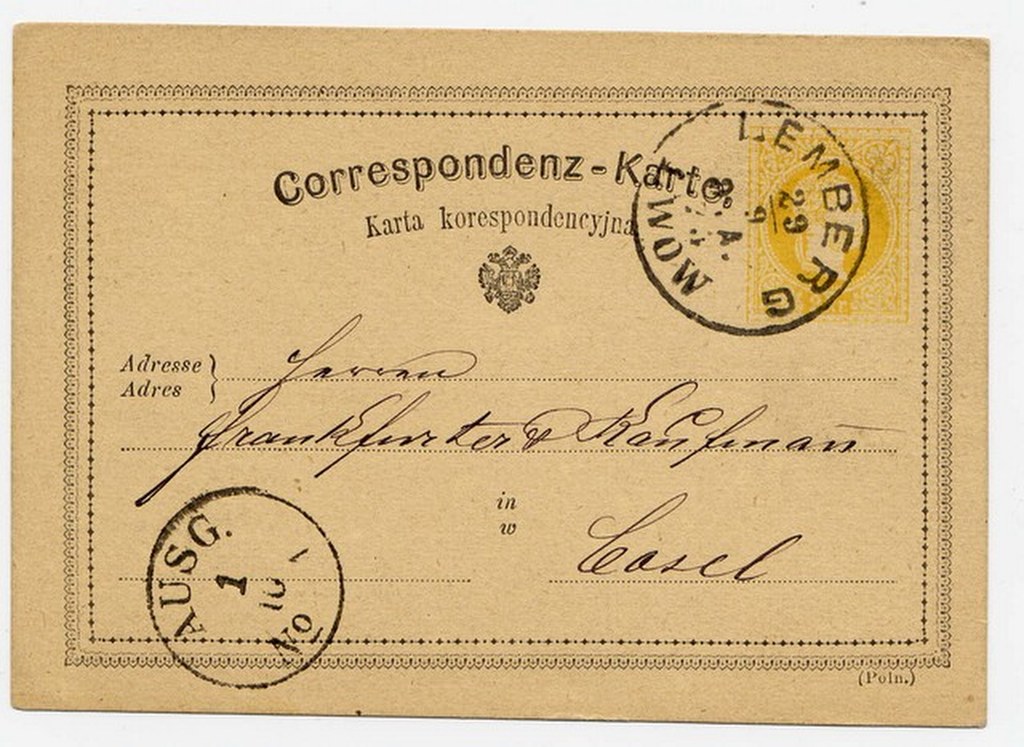 Correspondenz-Karte.
Karta korespondencyjna
LEMBERG
29
9
LWÓW
Adresse
Adres
Herren
Frankfurter & Kaufmañ
in
w
Cassel
AUSG.
1
10
1
No
(Poln.)